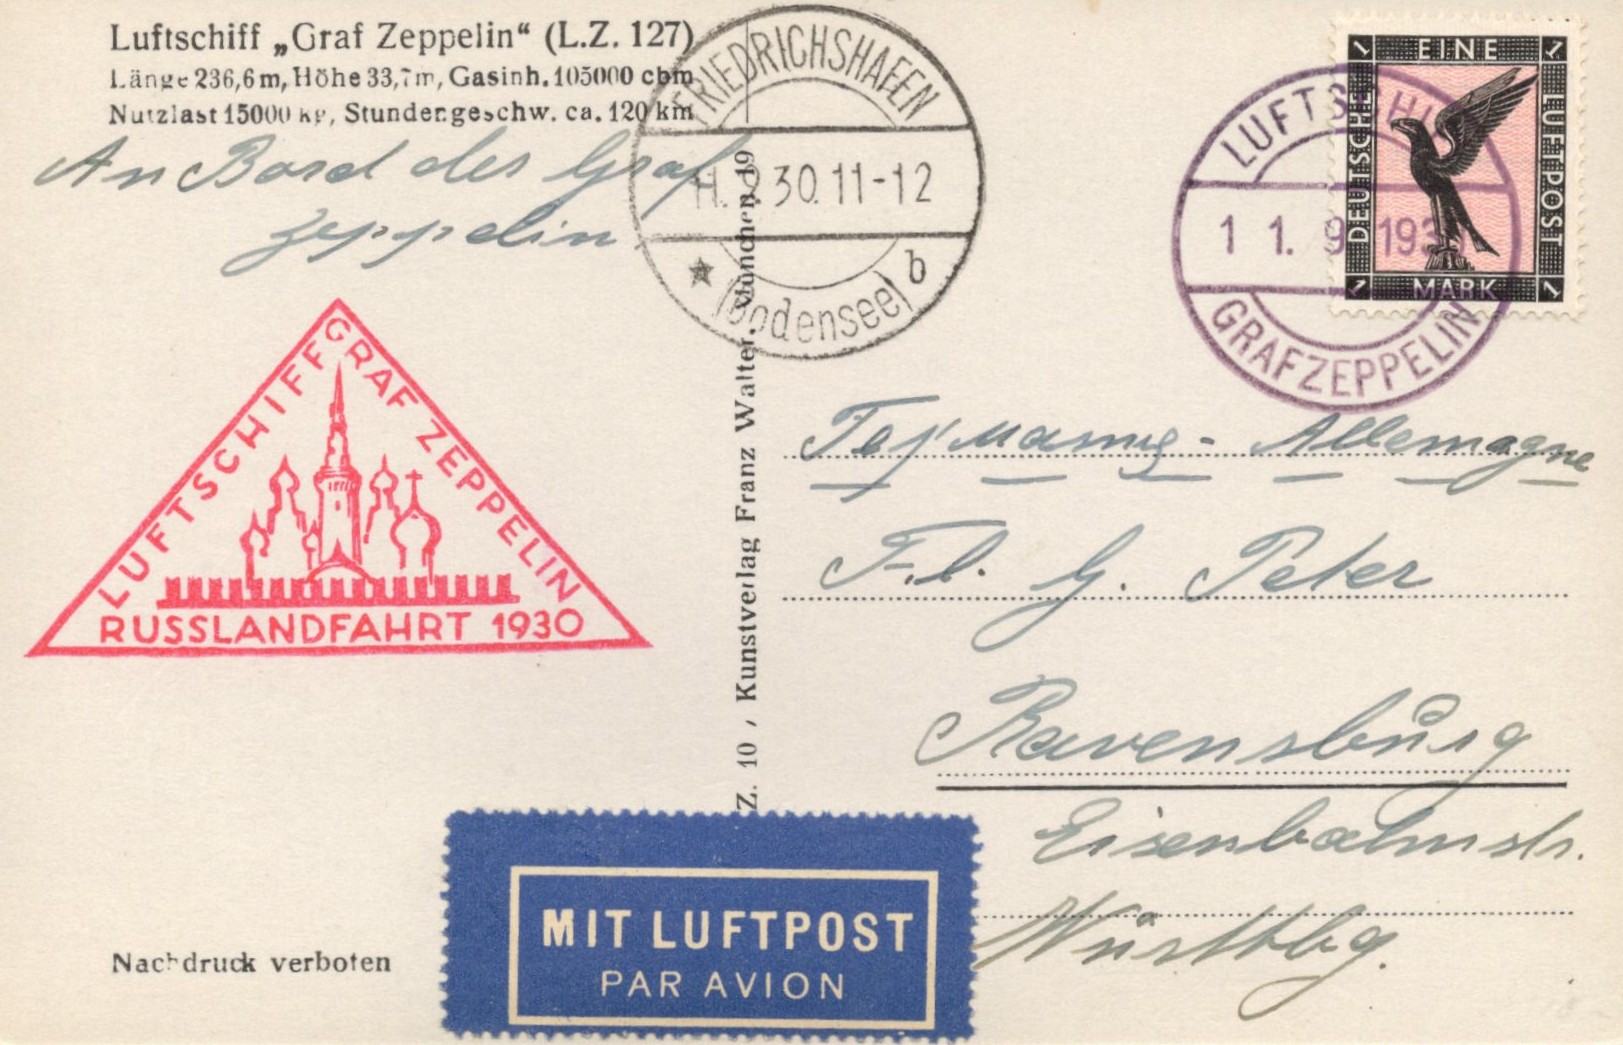 Luftschiff „Graf Zeppelin“ (L.Z. 127)
Länge 236,6 m, Höhe 33,7 m, Gasinh. 105000 cbm
Nutzlast 15000 kg, Stundengeschw. ca. 120 km
An Bord des Graf
Zeppelin
FRIEDRICHSHAFEN
11. 9 30. 11-12
(Bodensee) b
LUFTSCHIFF
11. 9. 1930
GRAF ZEPPELIN
EINE
DEUTSCHE
LUFTPOST
MARK
1
1
1
1
LUFTSCHIFF GRAF ZEPPELIN
RUSSLANDFAHRT 1930
Z. 10, Kunstverlag Franz Walter, München 19
Германия - Allemagne
Frl. G. Peter
Ravensburg
Eisenbahnstr.
Württbg.
MIT LUFTPOST
PAR AVION
Nachdruck verboten